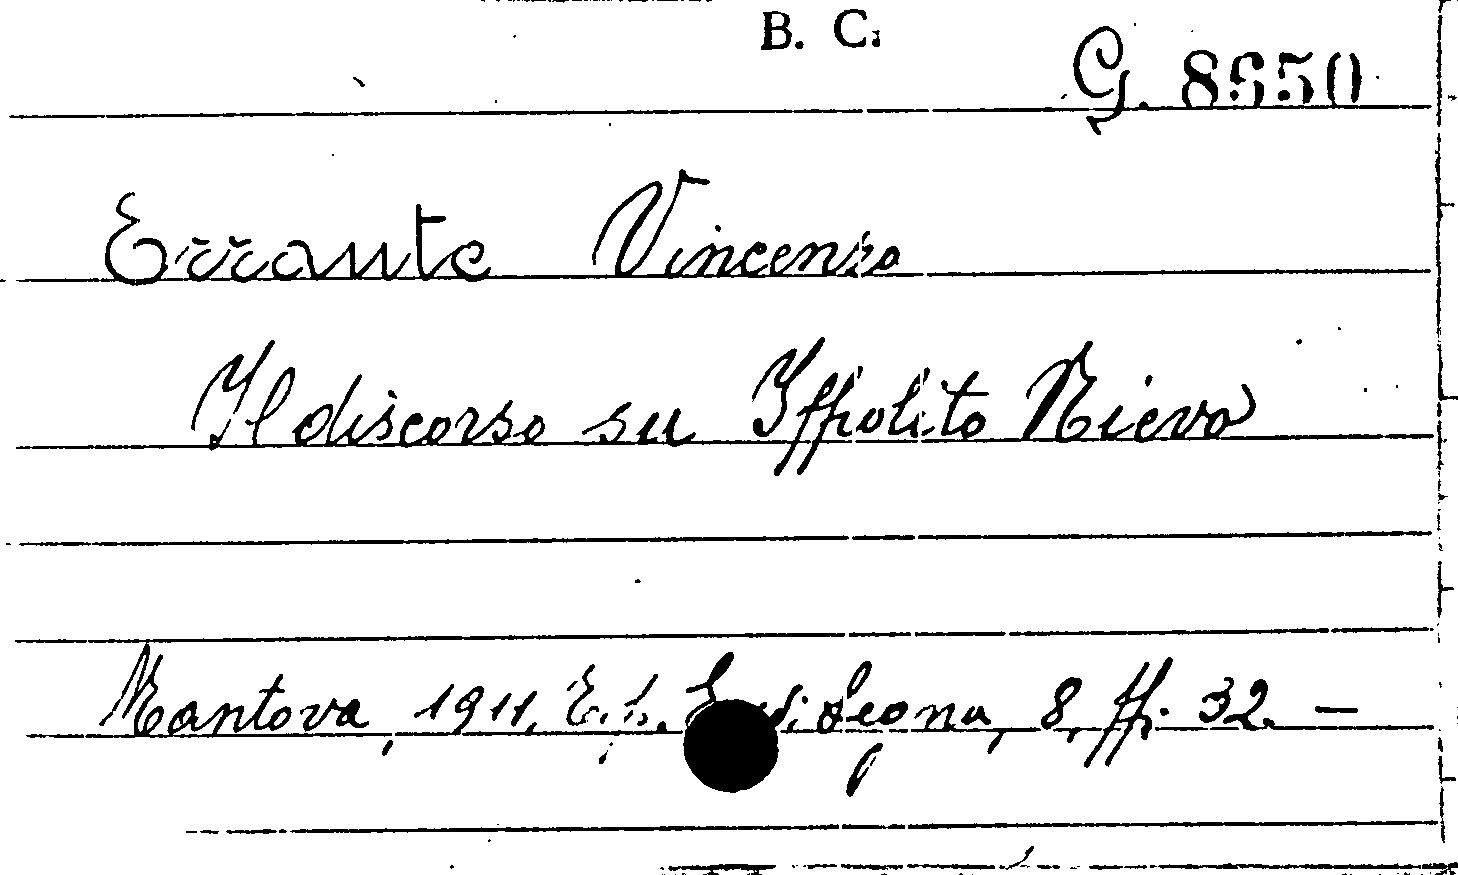 B. C.
G. 8650
Errante Vincenzo
Il discorso su Ippolito Nievo
Mantova, 1911, di Segna, 8, pp. 32. —